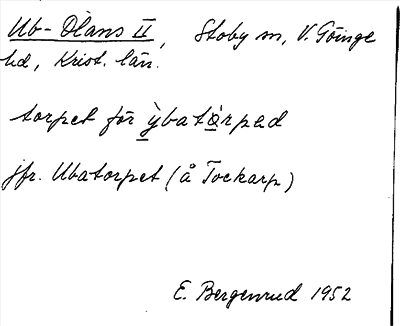 Ub-Olans II, Stoby sn, V. Göinge
hd, Krist. län.
torpet för ỳbatòrped
jfr. Ubatorpet (å Tockarp)
E. Bergenrud 1952